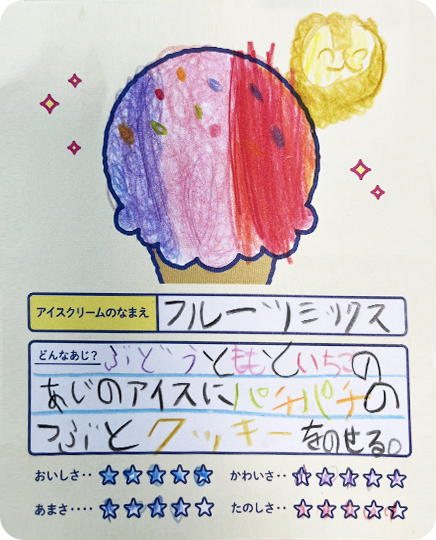 アイスクリームのなまえ フルーツミックス
どんなあじ? ぶどうとももといちごの
あじのアイスにパチパチの
つぶとクッキーをのせる。
おいしさ‥ かわいさ‥
あまさ‥‥ たのしさ‥